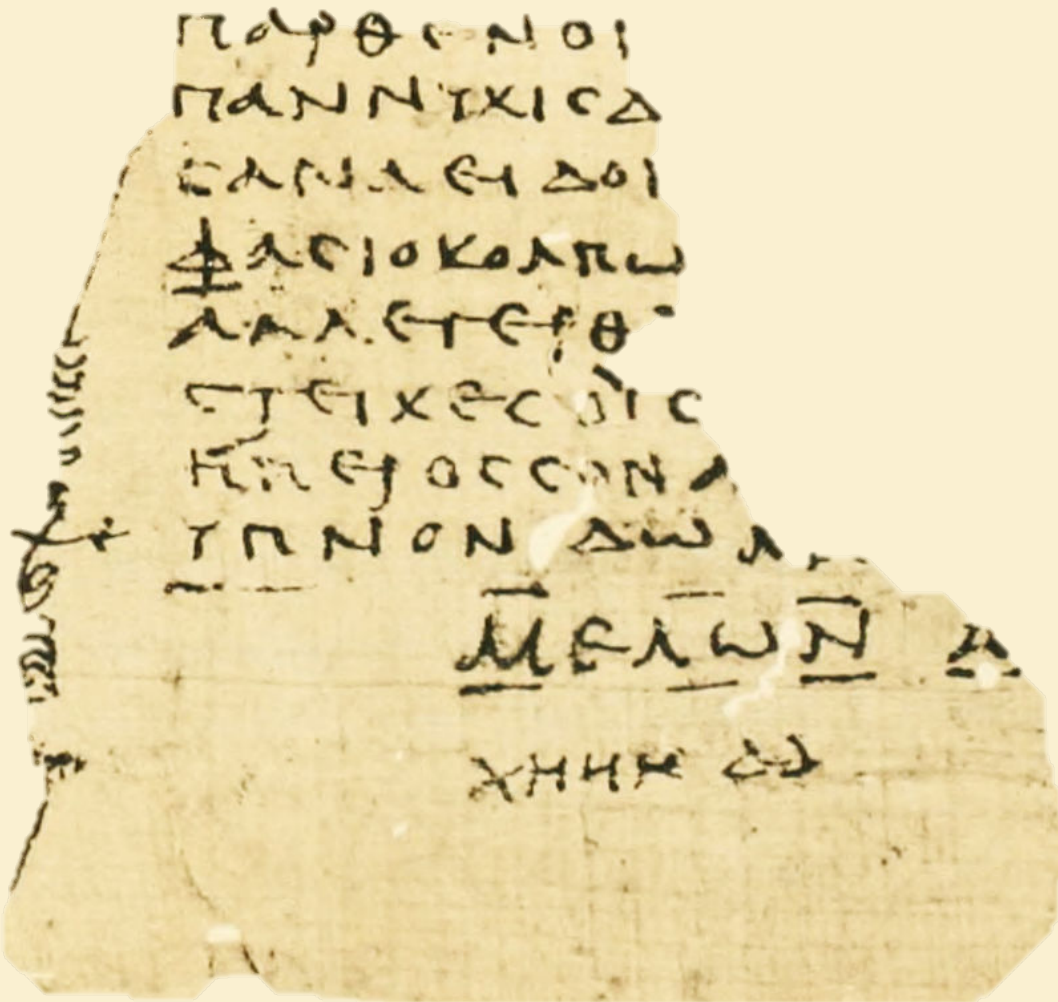 ΠΑΡΘΕΝΟΙ
ΠΑΝΝΥΧΙϹΔ
ϹΑΝΑΕΙΔΟΙ
ΦΑϹΙΟΚΟΛΠΩ
ΑΛΛΕΓΕΡΘ
ϹΤΕΙΧΕϹΟΙϹ
ΗΠΕΡΟϹϹΟΝΑ
ΥΠΝΟΝ ΔΩΜ
ΜΕΛΩΝ Α
ΧΗΗΗΔΔ